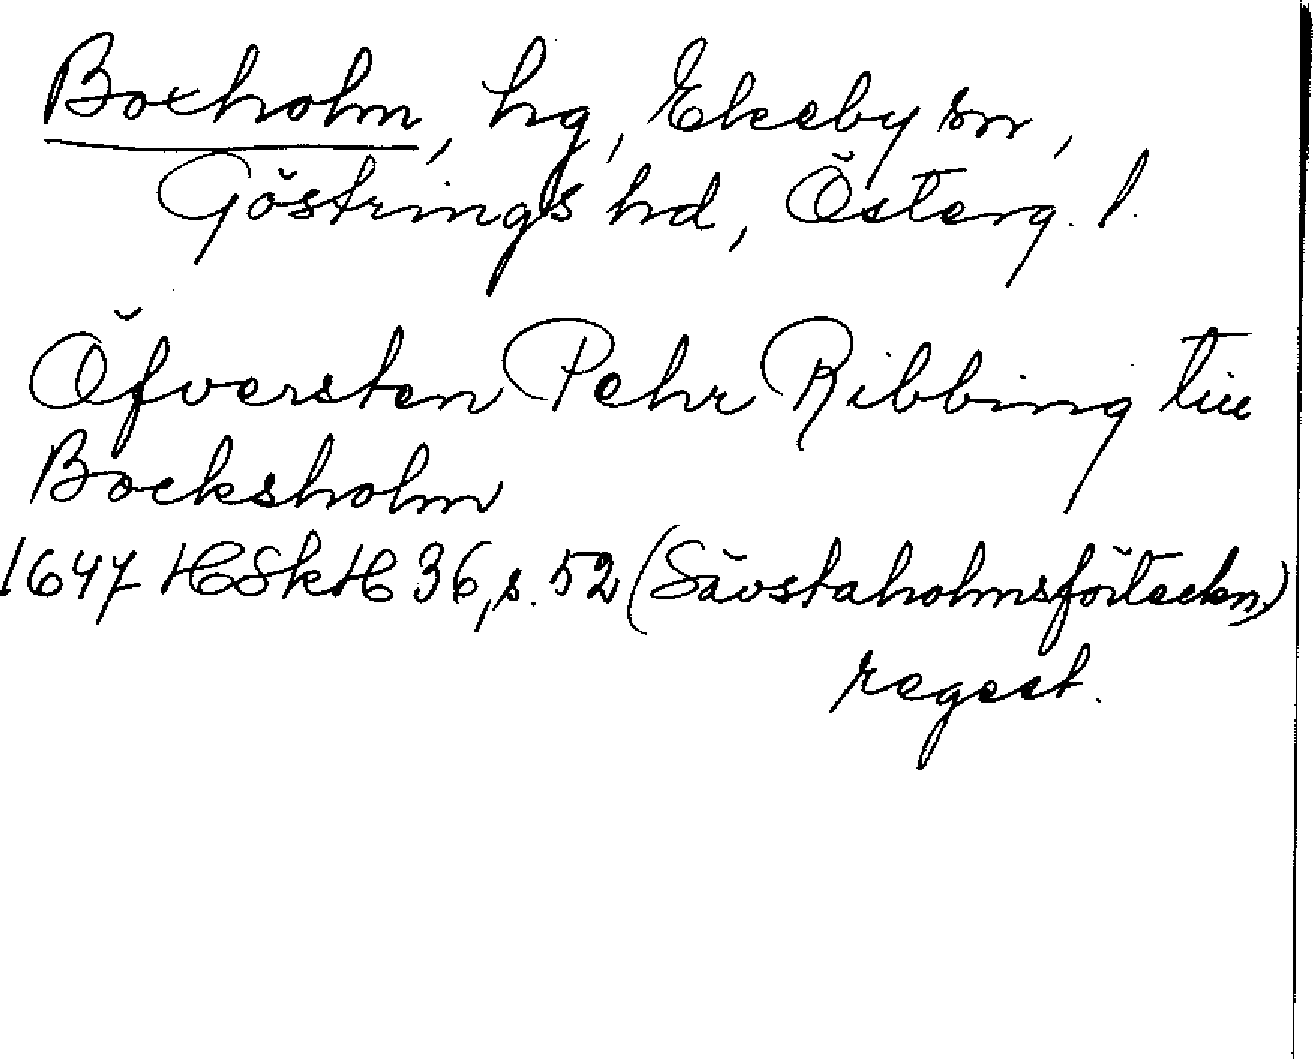 Boxholm, hg, Ekeby sn,
Göstrings hd, Österg. l.
Öfversten Pehr Ribbing till
Bocksholm
1647 HSkH 36, s. 52 (Sävstaholmsförteckn)
regest.